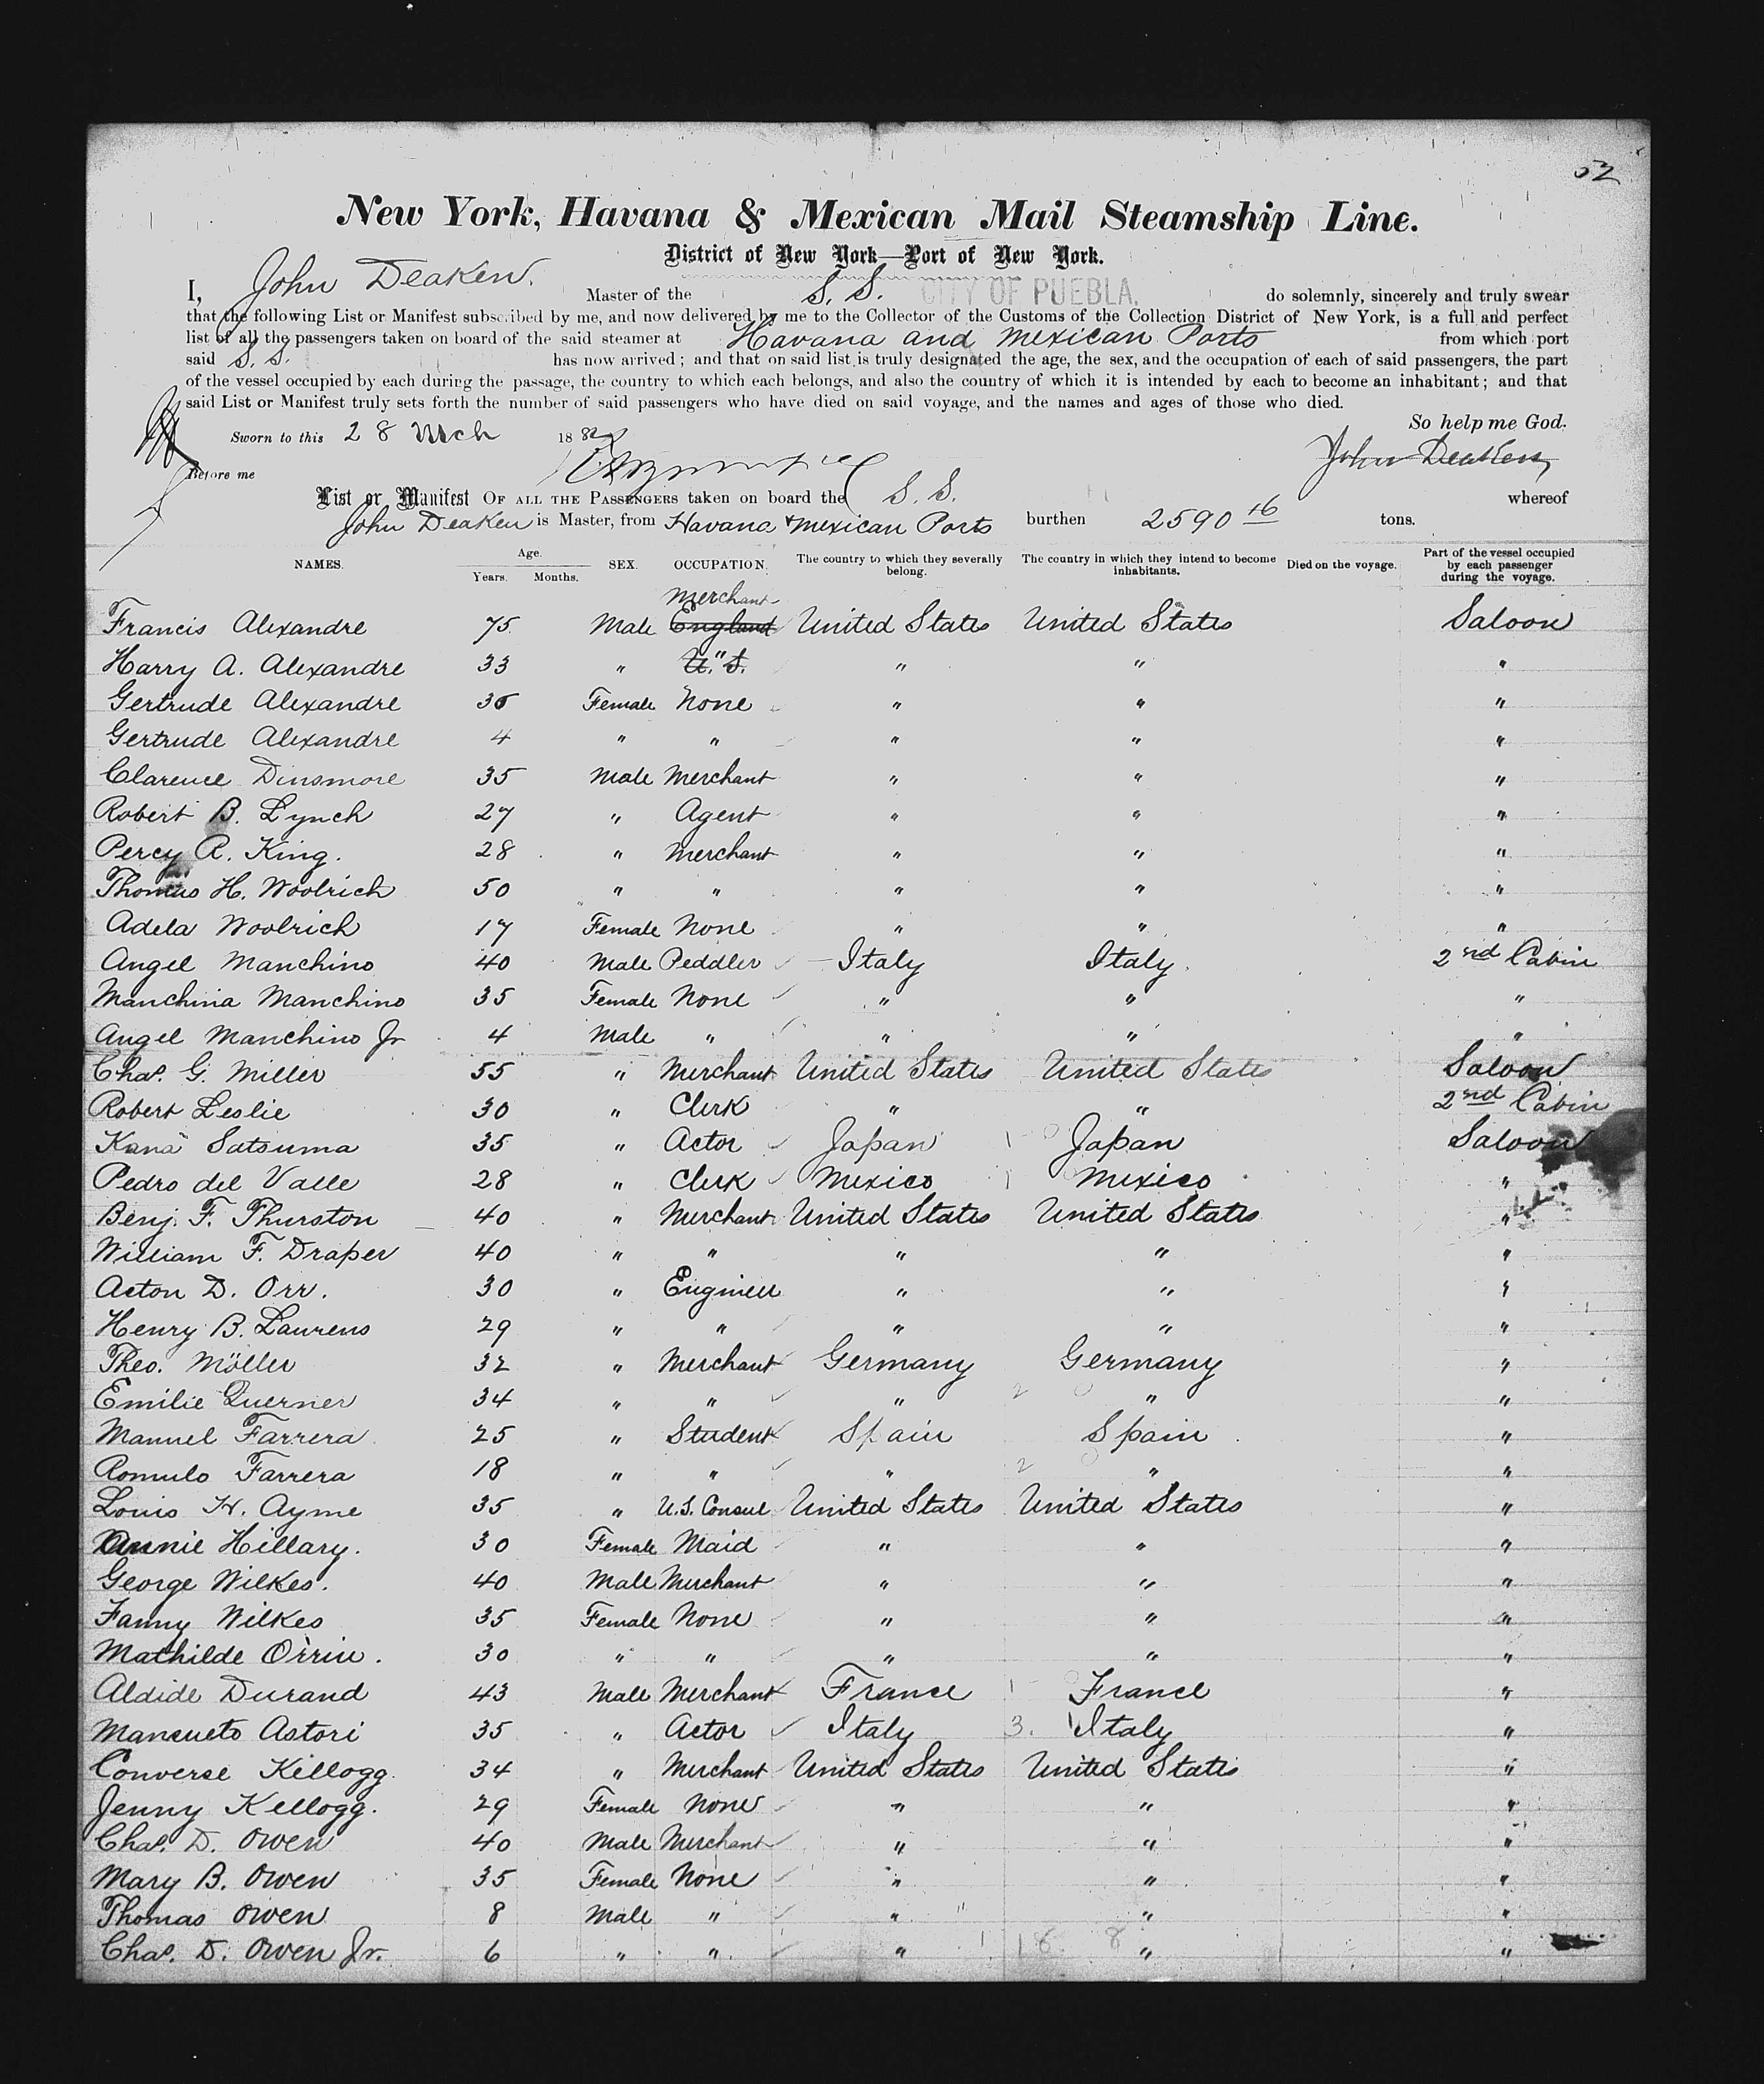 52
New York, Havana & Mexican Mail Steamship Line.
District of New York—Port of New York.
I, John Deaken. Master of the S. S. CITY OF PUEBLA. do solemnly, sincerely and truly swear
that the following List or Manifest subscribed by me, and now delivered by me to the Collector of the Customs of the Collection District of New York, is a full and perfect
list of all the passengers taken on board of the said steamer at Havana and Mexican Ports from which port
said S. S. has now arrived; and that on said list is truly designated the age, the sex, and the occupation of each of said passengers, the part
of the vessel occupied by each during the passage, the country to which each belongs, and also the country of which it is intended by each to become an inhabitant; and that
said List or Manifest truly sets forth the number of said passengers who have died on said voyage, and the names and ages of those who died.
So help me God.
Sworn to this 28 Mch 1882
John Deaken
Before me
List or Manifest OF ALL THE PASSENGERS taken on board the S. S. whereof
John Deaken is Master, from Havana & Mexican Ports burthen 2590 16 tons.
NAMES. Age. Years. Months. SEX. OCCUPATION. The country to which they severally belong. The country in which they intend to become inhabitants. Died on the voyage. Part of the vessel occupied by each passenger during the voyage.
Merchant
Francis Alexandre 75 Male England United States United States Saloon
Harry A. Alexandre 33 " U. S. " " " "
Gertrude Alexandre 36 Female None " " "
Gertrude Alexandre 4 " " " " "
Clarence Dinsmore 35 Male Merchant " " "
Robert B. Lynch 27 " Agent " " "
Percy R. King. 28 " Merchant " " "
Thomas H. Woolrich 50 " " " " "
Adela Woolrich 17 Female None " " "
Angel Manchino 40 Male Peddler Italy Italy. 2nd Cabin
Manchina Manchino 35 Female None " " "
Angel Manchino Jr 4 Male " " " "
Chas. G. Miller 55 " Merchant United States United States Saloon
Robert Leslie 30 " Clerk " " 2nd Cabin
Kana Satsuma 35 " Actor Japan Japan Saloon
Pedro del Valle 28 " Clerk Mexico Mexico "
Benj. F. Thurston 40 " Merchant United States United States "
William F. Draper 40 " " " " "
Acton D. Orr. 30 " Engineer " " "
Henry B. Laurens 29 " " " " "
Theo. Möller 32 " Merchant Germany Germany "
Emilie Querner 34 " " " 2 " "
Manuel Farrera 25 " Student Spain Spain "
Romulo Farrera 18 " " " 2 " "
Louis H. Ayme 35 " U.S. Consul United States United States "
Annie Hillary. 30 Female Maid " " "
George Wilkes. 40 Male Merchant " " "
Fanny Wilkes 35 Female None " " "
Mathilde Orrin. 30 " " " " "
Aldide Durand 43 Male Merchant France 1 France "
Mansueto Astori 35 " Actor Italy 3. Italy "
Converse Killogg. 34 " Merchant United States United States "
Jenny Kellogg. 29 Female None " " "
Chas. D. Owen 40 Male Merchant " " "
Mary B. Owen 35 Female None " " "
Thomas Owen 8 Male " " " "
Chas. D. Owen Jr. 6 " " " " "